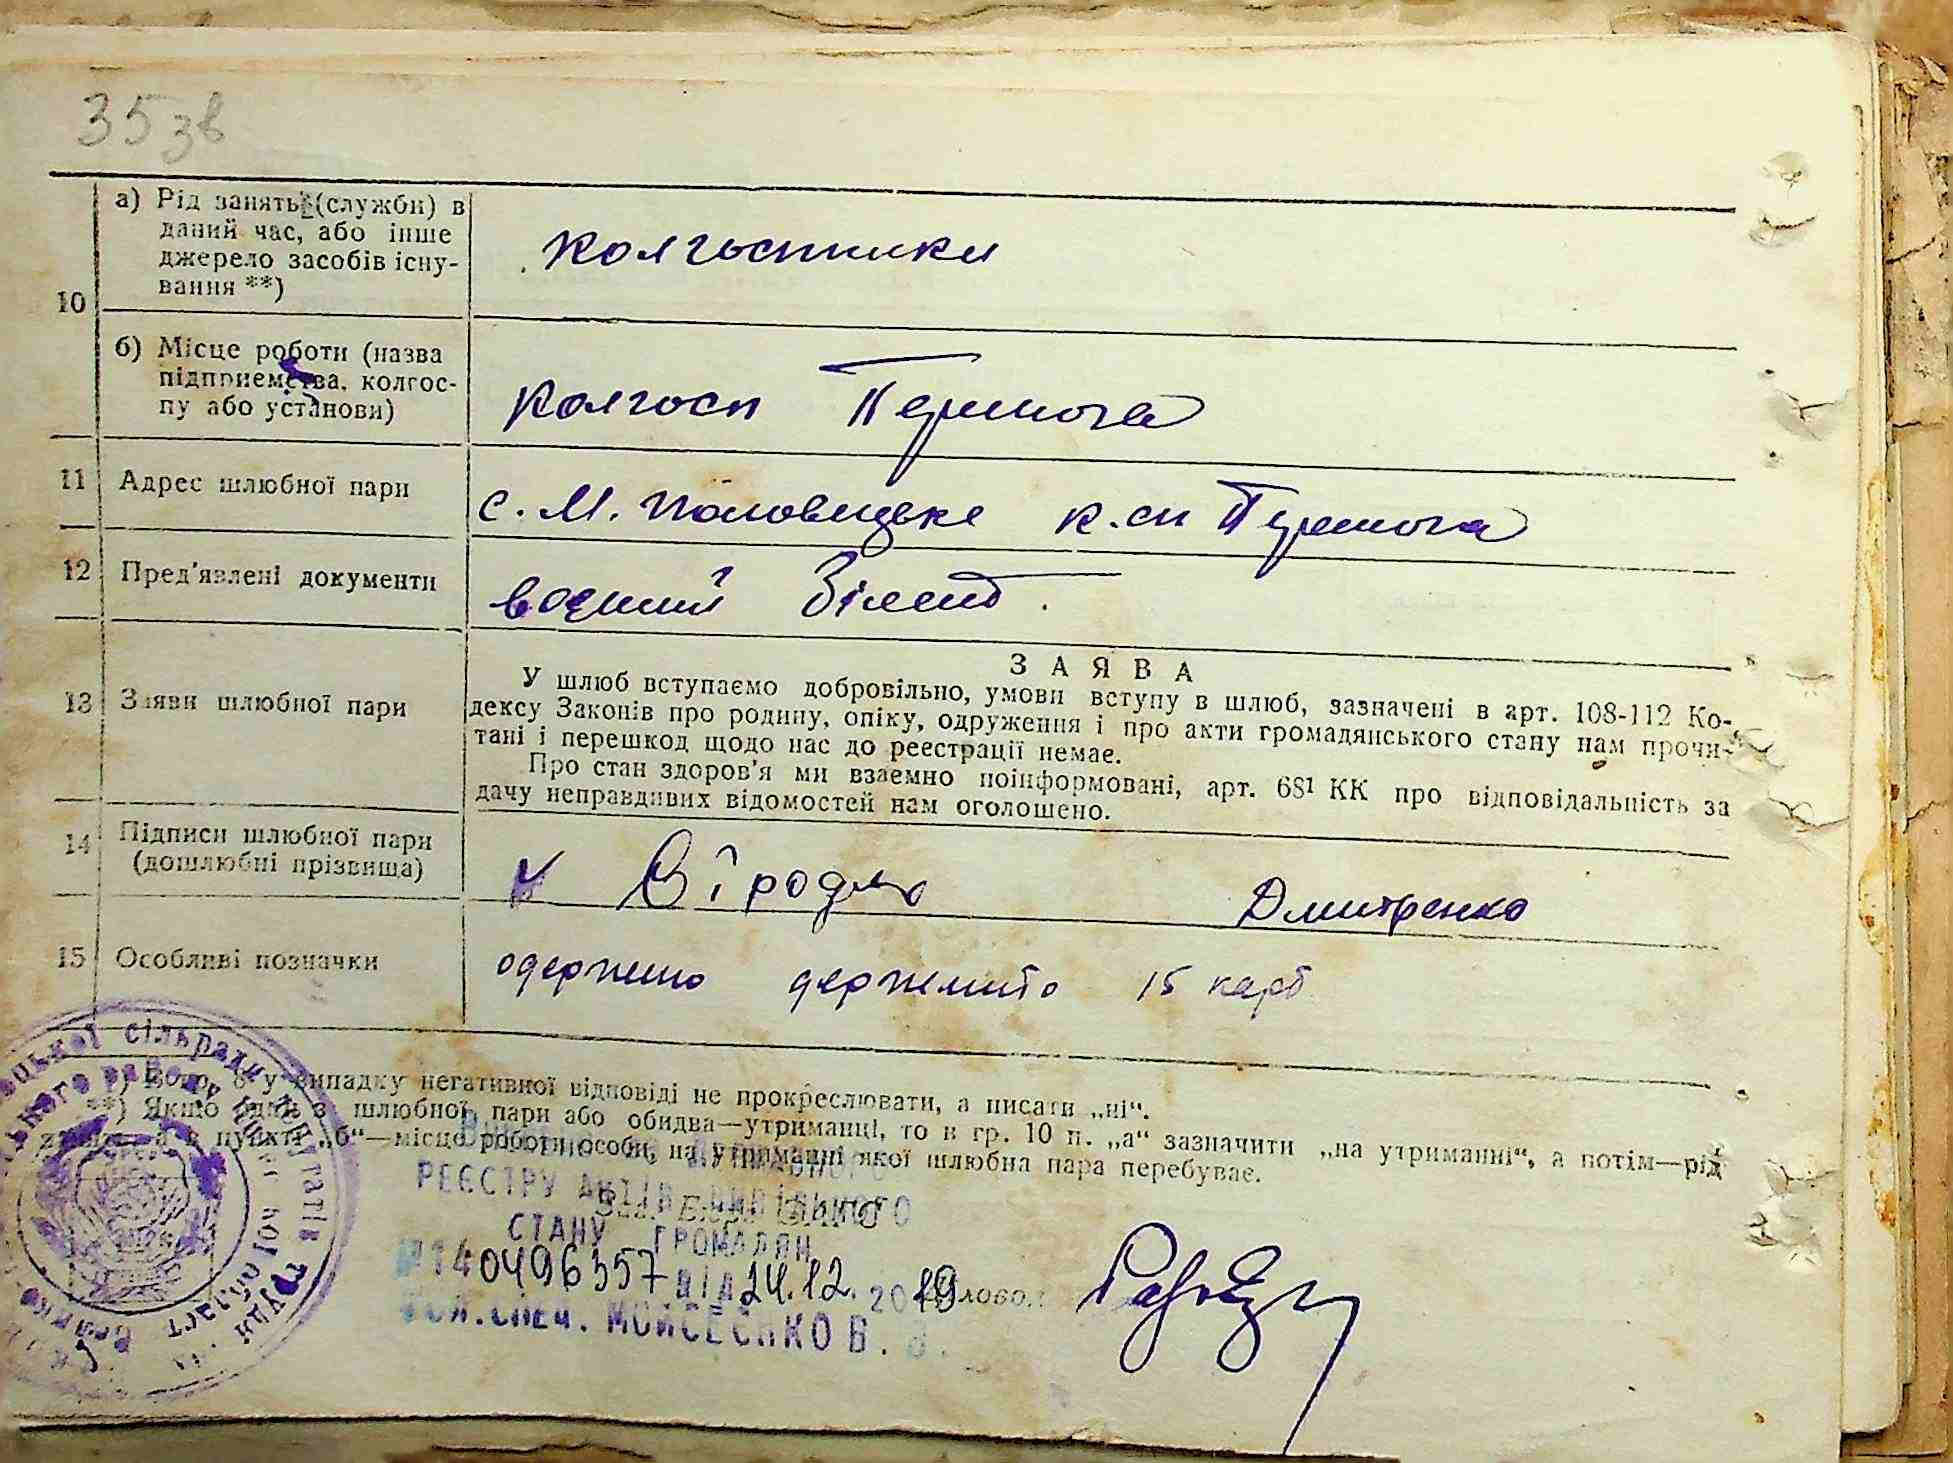 35 зв
10
а) Рід занять (служби) в
даний час, або інше
джерело засобів існу-
вання **)
колгоспники
б) Місце роботи (назва
підприємства, колгос-
пу або установи)
колгосп Перемога
11 Адрес шлюбної пари
с. М. Половецьке к.сп Перемога
12 Пред'явлені документи
воєнний білет.
13 Заяви шлюбної пари
ЗАЯВА
У шлюб вступаємо добровільно, умови вступу в шлюб, зазначені в арт. 108-112 Ко-
дексу Законів про родину, опіку, одруження і про акти громадянського стану нам прочи-
тані і перешкод щодо нас до реестрації немає.
Про стан здоров'я ми взаємно поінформовані, арт. 68¹ КК про відповідальність за
дачу неправдивих відомостей нам оголошено.
14 Підписи шлюбної пари
(дошлюбні прізвища)
Дмитренко
15 Особливі позначки
одержано держмито 15 карб
у випадку негативної відповіді не прокреслювати, а писати „ні“.
**) Якщо один з шлюбної пари або обидва—утриманці, то в гр. 10 п. „а“ зазначити „на утриманні“, а потім—рід
а в пункті „б“—місце роботи особи, на утриманні якої шлюбна пара перебуває.
сільради
РЕЄСТРУ АКТІВ ЦИВІЛЬНОГО
СТАНУ ГРОМАДЯН
№140496357 від 24.12.2019
МОЙСЕЄНКО В.